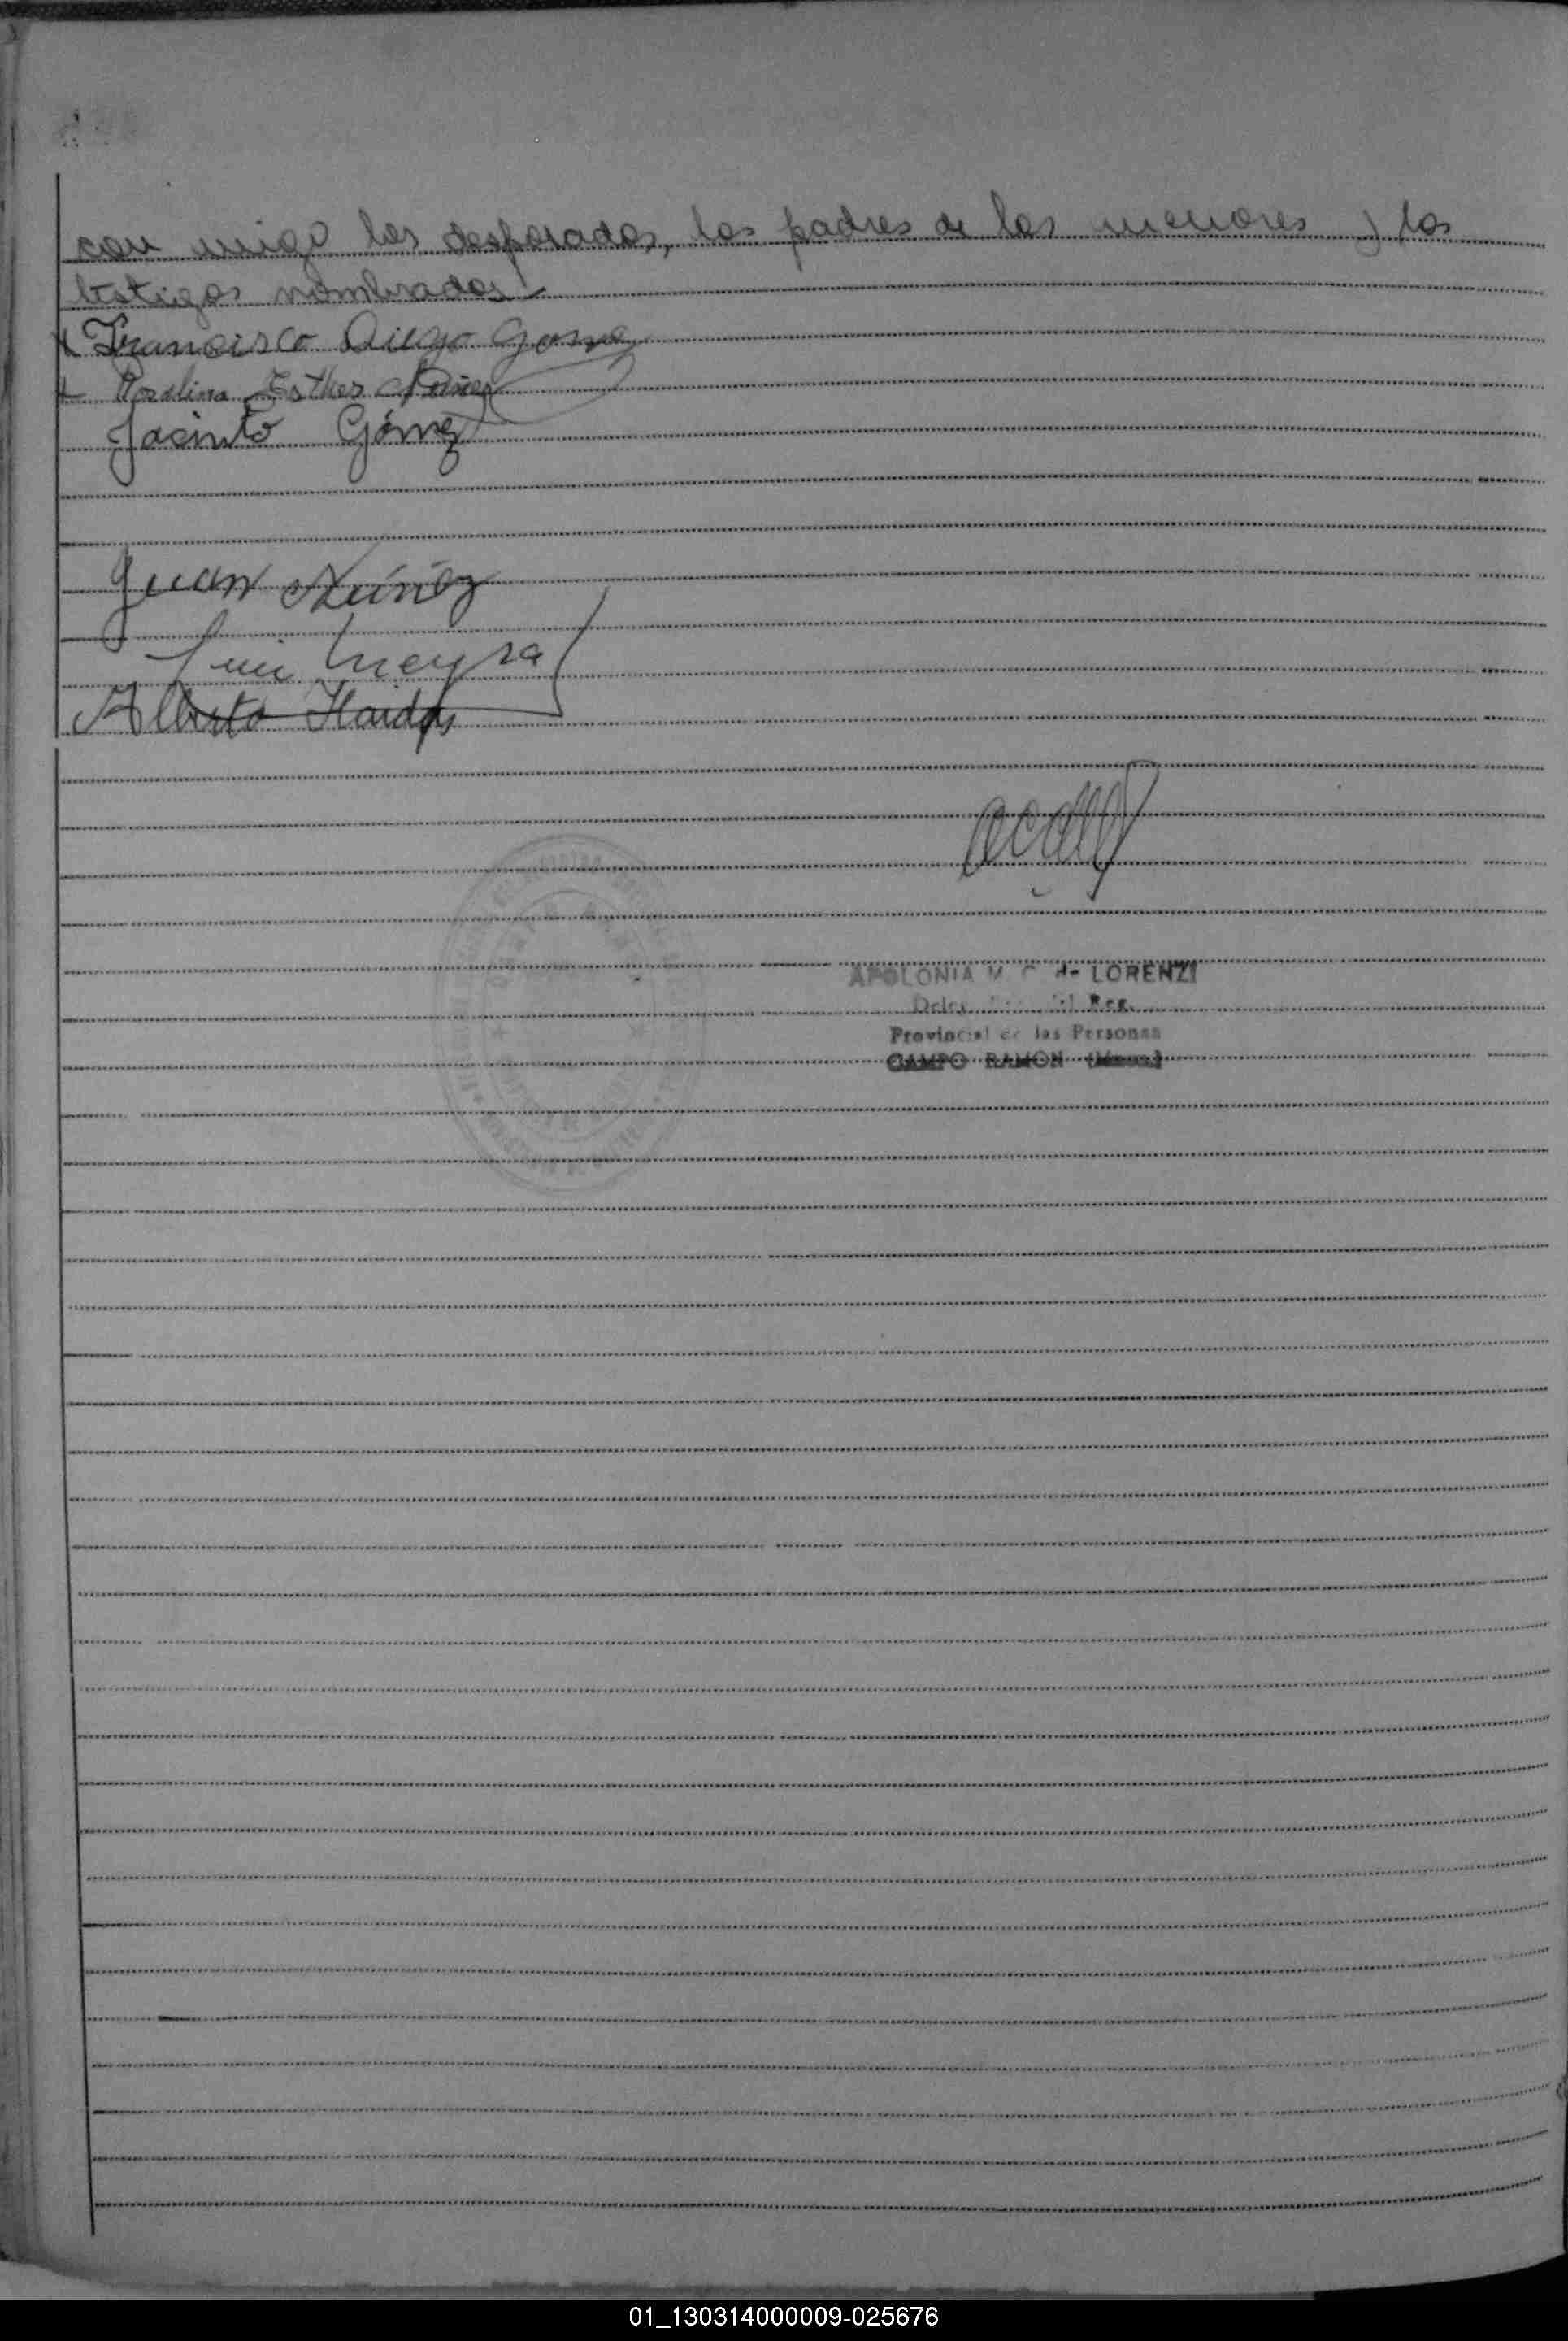 con migo los desposados, los padres de los menores y los
testigos nombrados.
x Francisco Diego Gomez
x Rosalina Esther Núñez
Jacinto Gómez
Juan Núñez
Luis
Alberto Haidas
APOLONIA M. C. de LORENZI
Deleg. del Reg.
Provincial de las Personas
CAMPO RAMON (Mnes.)
01_130314000009-025676